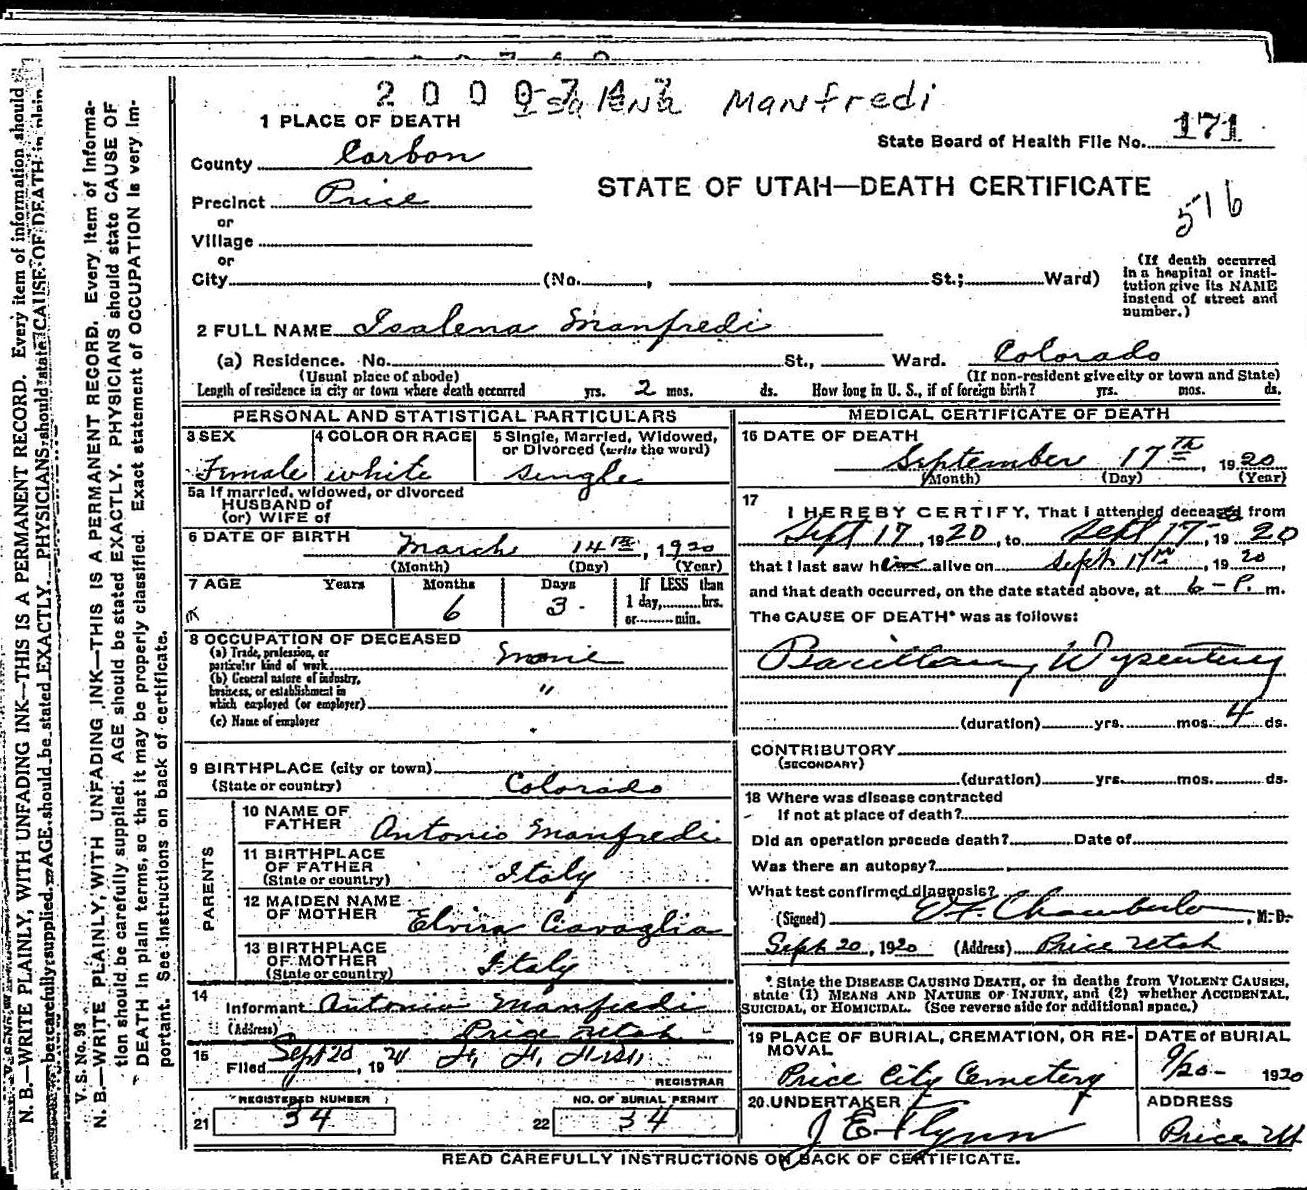 2 0 0 0 7 4 7
Isalena Manfredi
1 PLACE OF DEATH
State Board of Health File No. 171
County Carbon
STATE OF UTAH—DEATH CERTIFICATE
516
Precinct Price
or
Village
or
City (No. , St.; Ward)
(If death occurred
in a hospital or insti-
tution give its NAME
instead of street and
number.)
2 FULL NAME Isalena Manfredi
(a) Residence. No. St., Ward. Colorado
(Usual place of abode) (If non-resident give city or town and State)
Length of residence in city or town where death occurred yrs. 2 mos. ds. How long in U. S., if of foreign birth? yrs. mos. ds.
PERSONAL AND STATISTICAL PARTICULARS
3 SEX
Female
4 COLOR OR RACE
white
5 Single, Married, Widowed,
or Divorced (write the word)
single
5a If married, widowed, or divorced
HUSBAND of
(or) WIFE of
6 DATE OF BIRTH
March 14th, 1920
(Month) (Day) (Year)
7 AGE Years Months Days If LESS than
6 3 1 day, hrs.
or min.
8 OCCUPATION OF DECEASED
(a) Trade, profession, or
particular kind of work None
(b) General nature of industry,
business, or establishment in
which employed (or employer) "
(c) Name of employer
9 BIRTHPLACE (city or town)
(State or country) Colorado
PARENTS
10 NAME OF
FATHER Antonio Manfredi
11 BIRTHPLACE
OF FATHER
(State or country) Italy
12 MAIDEN NAME
OF MOTHER Elvira Ciavaglia
13 BIRTHPLACE
OF MOTHER
(State or country) Italy
14
Informant Antonio Manfredi
(Address) Price Utah
15
Filed Sept 20, 19
REGISTRAR
REGISTERED NUMBER
21 34
NO. OF BURIAL PERMIT
22 34
MEDICAL CERTIFICATE OF DEATH
16 DATE OF DEATH
September 17th, 1920
(Month) (Day) (Year)
17
I HEREBY CERTIFY, That I attended deceased from
Sept 17, 1920, to Sept 17, 1920
that I last saw h alive on Sept 17th, 1920,
and that death occurred, on the date stated above, at 6-P. m.
The CAUSE OF DEATH* was as follows:
Bacillary Dysentery
(duration) yrs. mos. 4 ds.
CONTRIBUTORY
(SECONDARY)
(duration) yrs. mos. ds.
18 Where was disease contracted
If not at place of death?
Did an operation precede death? Date of
Was there an autopsy?
What test confirmed diagnosis?
(Signed) , M. D.
Sept 20, 1920 (Address) Price Utah
* State the DISEASE CAUSING DEATH, or in deaths from VIOLENT CAUSES,
state (1) MEANS AND NATURE OF INJURY, and (2) whether ACCIDENTAL,
SUICIDAL, or HOMICIDAL. (See reverse side for additional space.)
19 PLACE OF BURIAL, CREMATION, OR RE-
MOVAL
Price City Cemetery
DATE of BURIAL
9/20- 1920
20 UNDERTAKER
J E Flynn
ADDRESS
Price Ut
READ CAREFULLY INSTRUCTIONS ON BACK OF CERTIFICATE.
V. S. No. 93
N. B.—WRITE PLAINLY, WITH UNFADING INK—THIS IS A PERMANENT RECORD. Every item of informa-
tion should be carefully supplied. AGE should be stated EXACTLY. PHYSICIANS should state CAUSE OF
DEATH in plain terms, so that it may be properly classified. Exact statement of OCCUPATION is very im-
portant. See instructions on back of certificate.
N. B.—WRITE PLAINLY, WITH UNFADING INK—THIS IS A PERMANENT RECORD. Every item of information should
be carefully supplied. AGE should be stated EXACTLY. PHYSICIANS should state CAUSE OF DEATH in plain